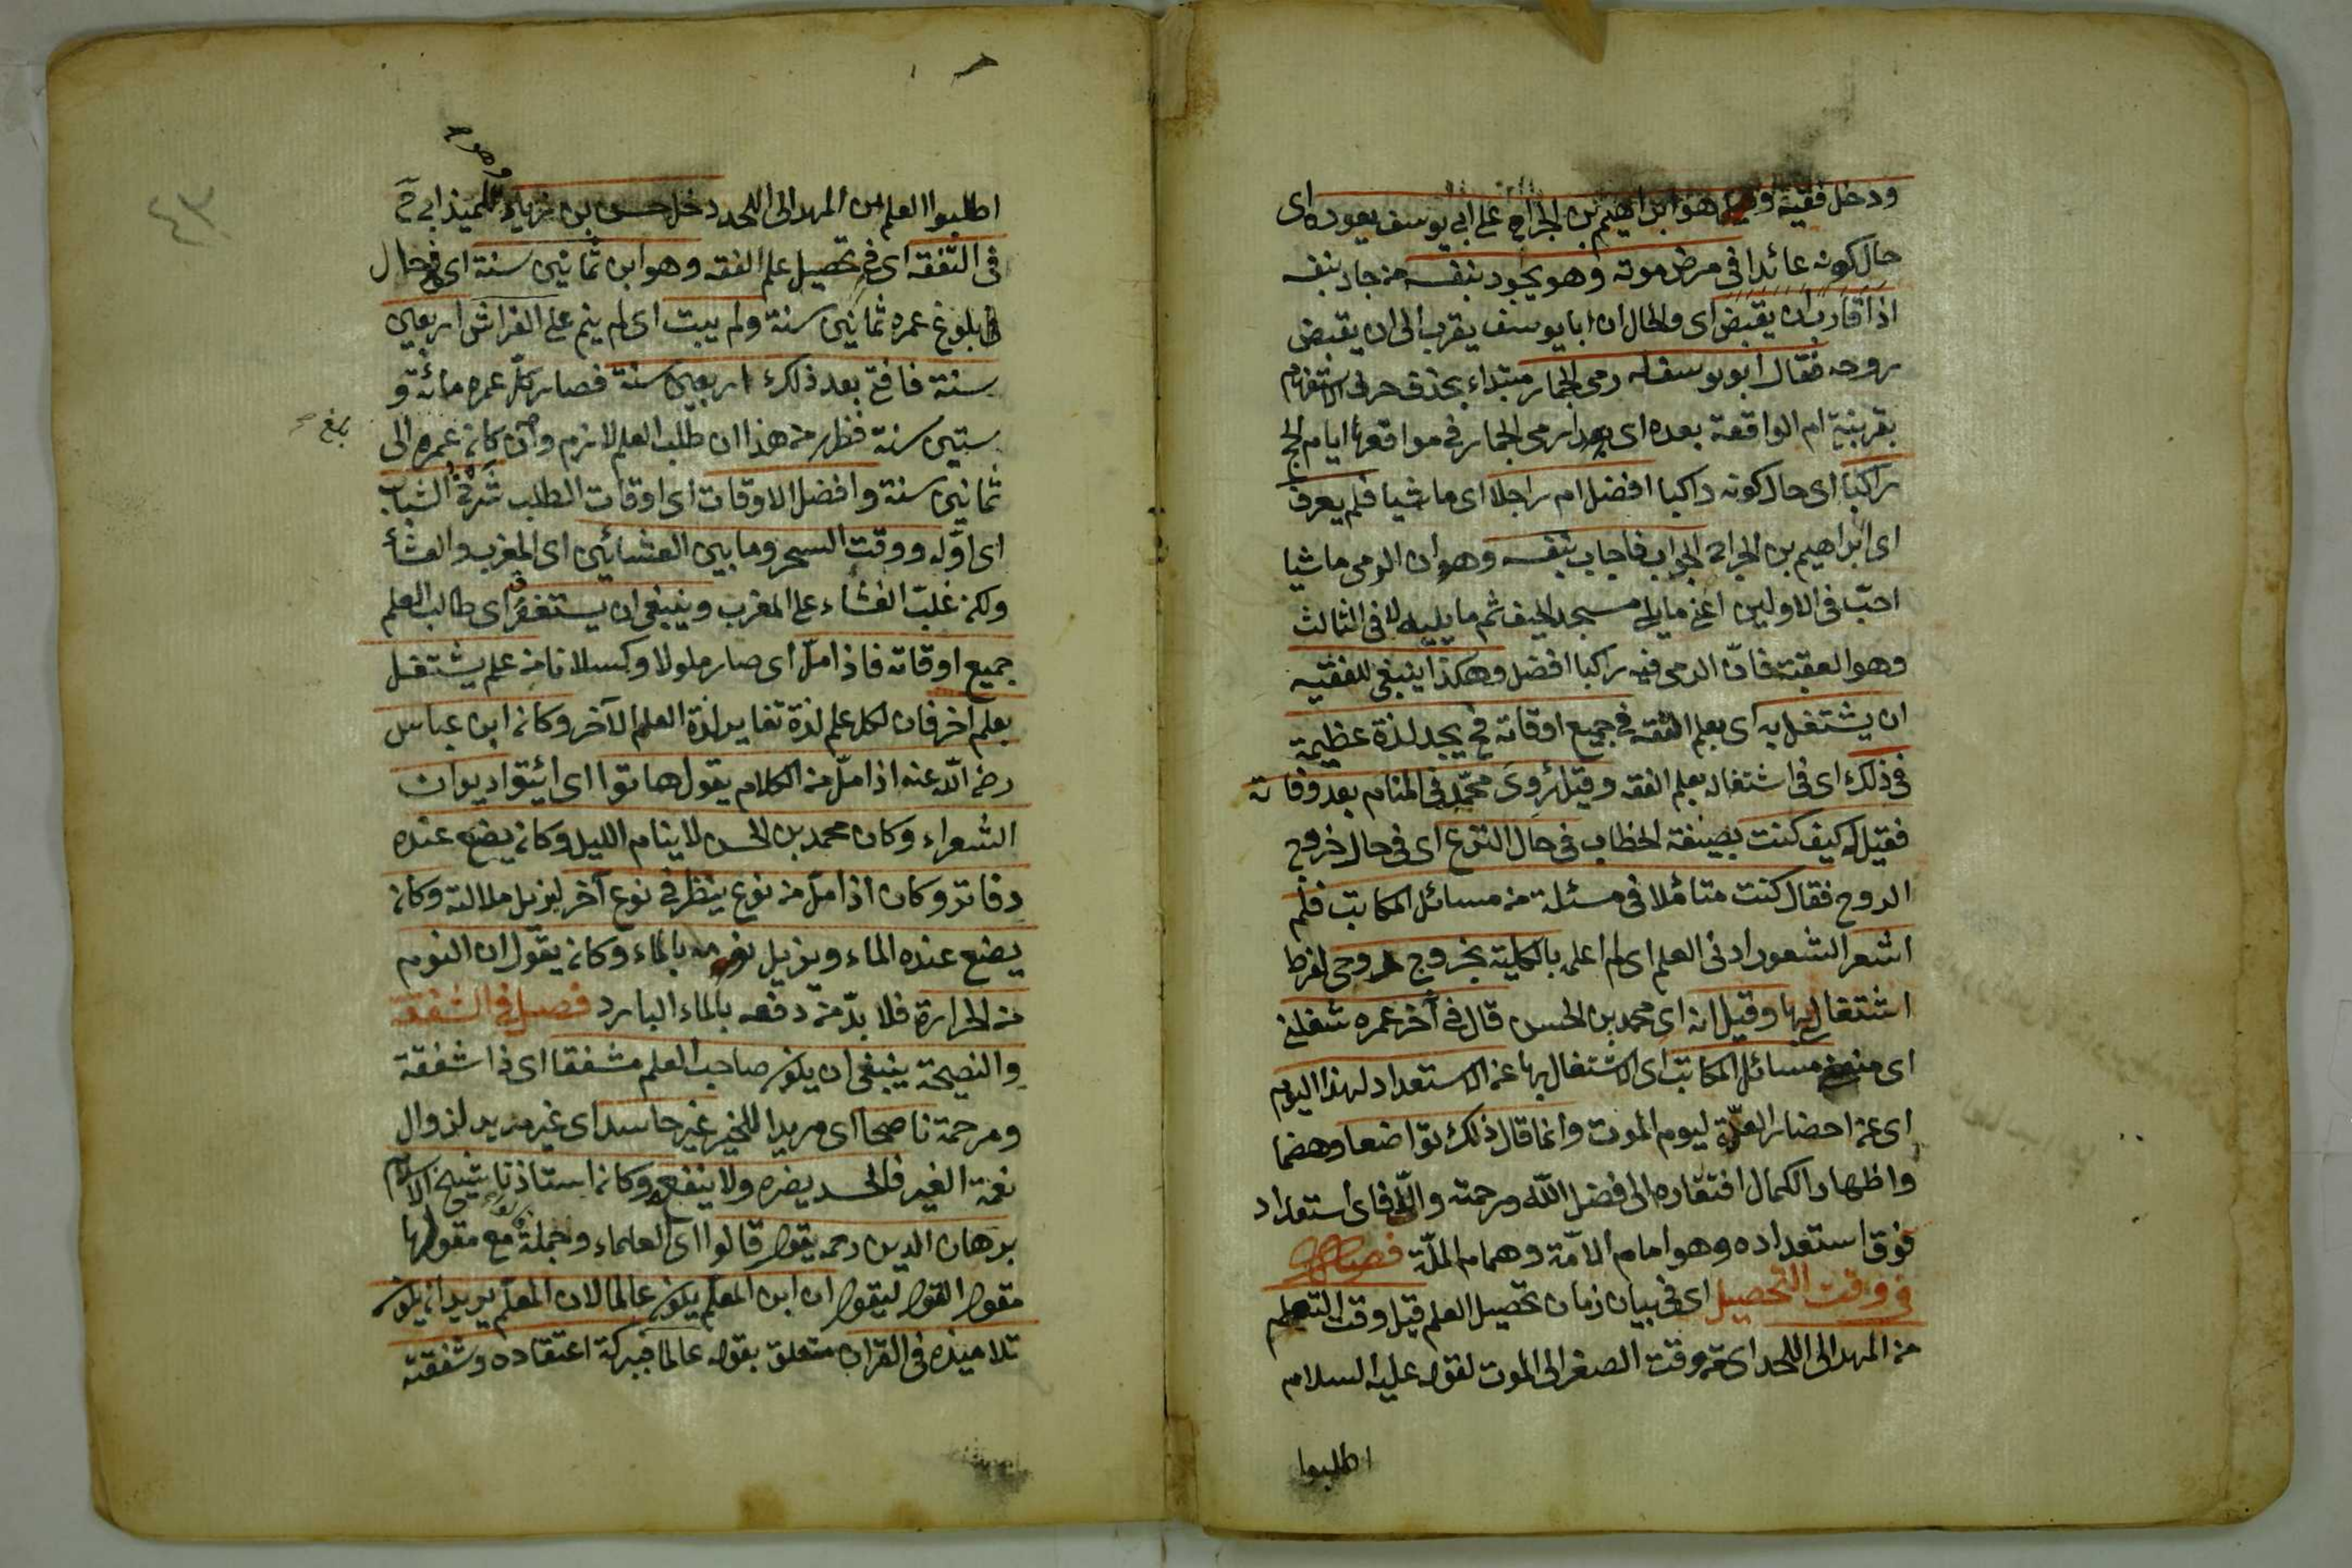 ودخل فقيه وهو هو ابراهيم بن الجراح على ابي يوسف يعوده اى
حال كونه عائدا فى مرض موته وهو يجود بنفسه من جاد بنفسه
اذا قارب ان يقبض اى والحال ان ابا يوسف يقرب الى ان يقبض
روحه فقال ابو يوسف له رمى الجمار مبتداء بحذف حرف الاستفهام
بقرينة ام الواقعة بعده اى بعد ارمى الجمار فى مواقعها ايام الحج
راكبا اى حال كونه راكبا افضل ام راجلا اى ماشيا فلم يعرف
اى ابراهيم بن الجراح الجواب فاجاب بنفسه وهو ان الرمى ماشيا
احبّ فى الاولين اعنى ما يلى مسجد الخيف ثم ما يليه لا فى الثالث
وهو العقبة فانّ الرمى فيه راكبا افضل وهكذا ينبغى للفقيه
ان يشتغل به اى بعلم الفقه فى جميع اوقاته فح يجد لذة عظيمة
فى ذلك اى فى اشتغاله بعلم الفقه وقيل رُوِىَ محمّد فى المنام بعد وفاته
فقيل له كيف كنت بصيغة الخطاب فى حال النزع اى فى حال خروج
الروح فقال كنت متأملا فى مسئلة من مسائل المكاتب فلم
اشعر الشعور ادنى العلم اى لم اعلم بالكلية بخروج روحى لفرط
اشتغالى بها وقيل انه اى محمد بن الحسن قال فى آخر عمره شغلنى
اى منعنى مسائل المكاتب اى الاشتغال بها عن الاستعداد لهذا اليوم
اى عن احضار العدّة ليوم الموت وانما قال ذلك تواضعا وهضما
واظهارا لكمال افتقاره الى فضل الله ورحمته والّا فاى استعداد
فوق استعداده وهو امام الامّة وهمام الملّة فصل
فى وقت التحصيل اى فى بيان زمان تحصيل العلم قيل وقت التعلم
من المهد الى اللحد اى من وقت الصغر الى الموت لقوله عليه السلام
اطلبوا
٤٣
اطلبوا العلم من المهد الى اللحد دخل حسن بن زياد تلميذ ابى ح
فى التفقه اى فى تحصيل علم الفقه وهو ابن ثمانين سنة اى فى حال
بلوغ عمره ثمانين سنة ولم يبت اى لم ينم على الفراش اربعين
سنة فافتى بعد ذلك اربعين سنة فصار كلّ عمره مائة و
ستين سنة فظهر من هذا ان طلب العلم لازم وان كان عمره الى
ثمانين سنة وافضل الاوقات اى اوقات الطلب شَرْخُ الشباب
اى اوّله ووقت السحر وما بين العشائين اى المغرب والعشأ
ولكن غلّب العشاء على المغرب وينبغى ان يستغرق اى طالب العلم
جميع اوقاته فاذا ملّ اى صار ملولا وكسلانا من علم يشتغل
بعلم آخر فان لكل علم لذة تغاير لذة العلم الآخر وكان ابن عباس
رضى الله عنه اذا ملّ من الكلام يقول هاتوا اى ائيتوا ديوان
الشعراء وكان محمد بن الحسن لا ينام الليل وكان يضع عنده
دفاتر وكان اذا ملّ من نوع ينظر فى نوع آخر ليزيل ملالته وكان
يضع عنده الماء ويزيل نومه بالماء وكان يقول ان النوم
من الحرارة فلا بدّ من دفعه بالماء البارد فصل فى الشفقة
والنصيحة ينبغى ان يكون صاحب العلم مشفقا اى ذا شفقة
ومرحمة ناصحا اى مريدا للخير غير حاسد اى غير مريد لزوال
نعمة الغير فالحسد يضره ولا ينفعه وكان استاذنا شيخ الاسلام
برهان الدين رحمه يقول قالوا اى العلماء وجملة مع مقولها
مقول القول ليقول ان ابن المعلم يكون عالما لان المعلّم يريد ان يكون
تلاميذه فى القرآن متعلق بقوله عالما فببركة اعتقاده وشفقته